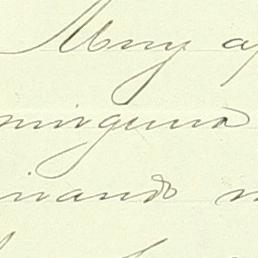 Muy ap
ninguna
inando n